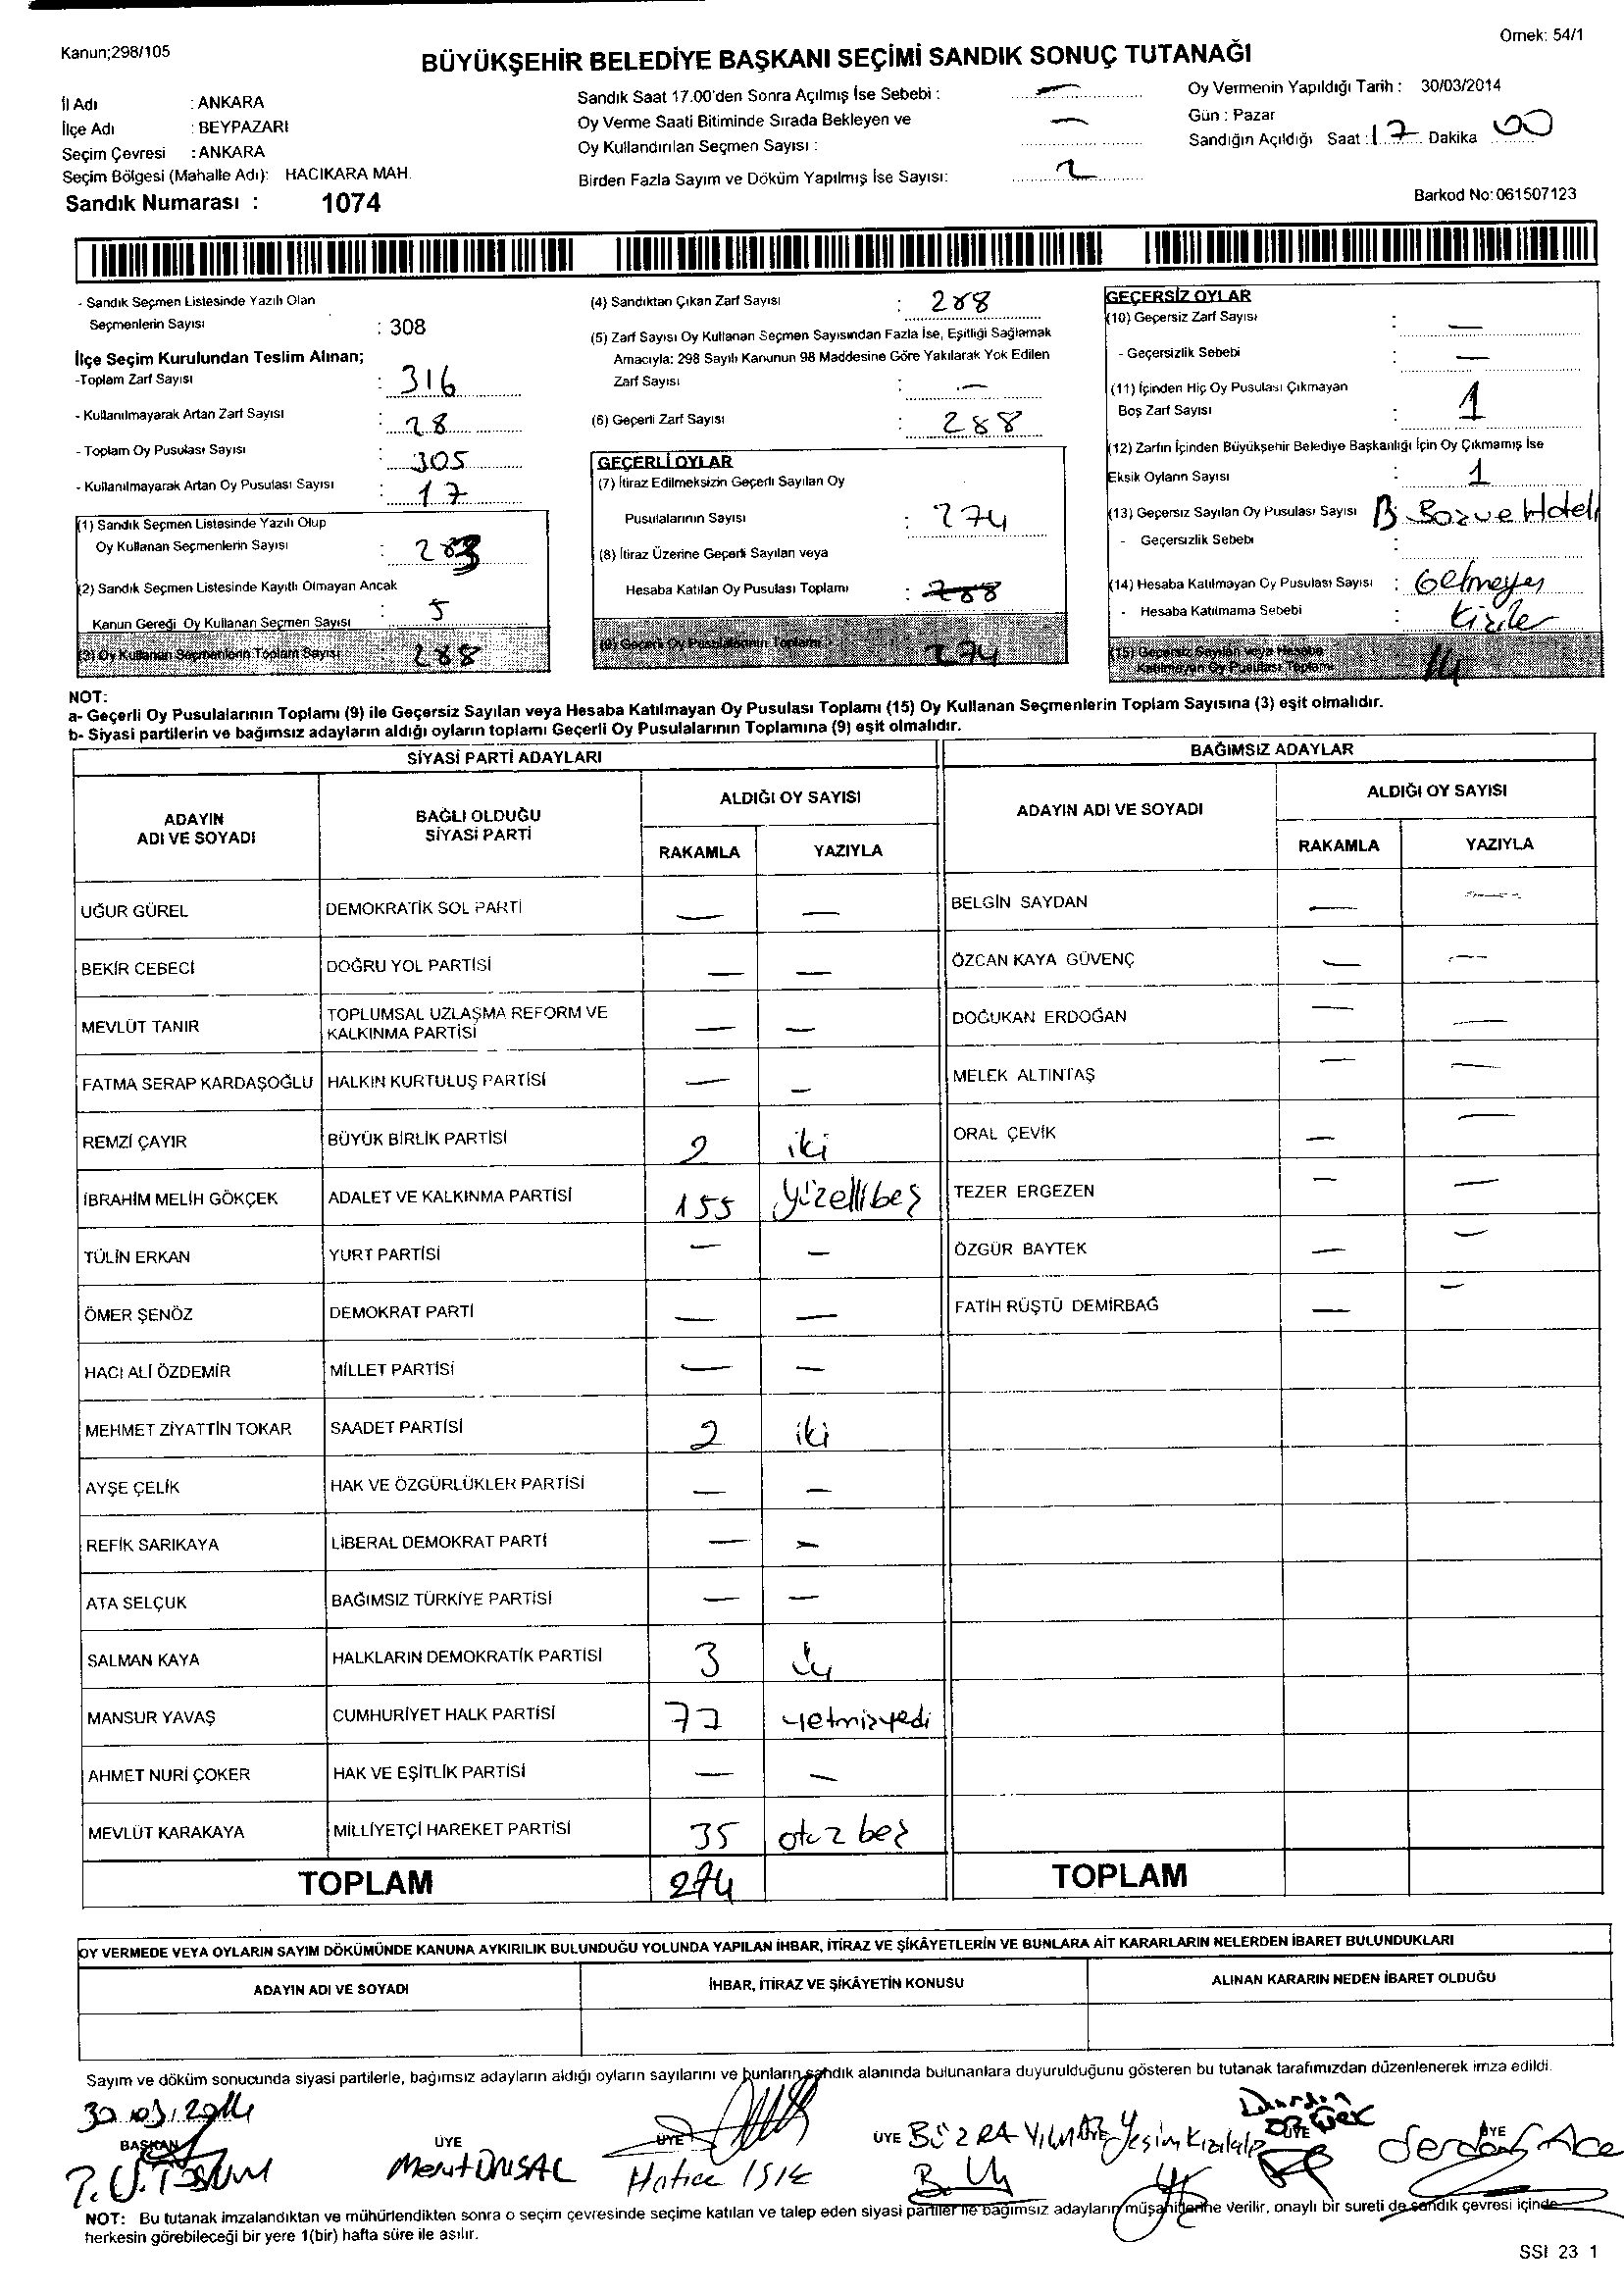 Kanun;298/105
Örnek: 54/1
BÜYÜKŞEHİR BELEDİYE BAŞKANI SEÇİMİ SANDIK SONUÇ TUTANAĞI
İl Adı : ANKARA
İlçe Adı : BEYPAZARI
Seçim Çevresi : ANKARA
Seçim Bölgesi (Mahalle Adı): HACIKARA MAH.
Sandık Numarası : 1074
Sandık Saat 17.00'den Sonra Açılmış İse Sebebi : —
Oy Verme Saati Bitiminde Sırada Bekleyen ve —
Oy Kullandırılan Seçmen Sayısı :
Birden Fazla Sayım ve Döküm Yapılmış İse Sayısı: 2
Oy Vermenin Yapıldığı Tarih : 30/03/2014
Gün : Pazar
Sandığın Açıldığı Saat : 17 Dakika 00
Barkod No: 061507123
- Sandık Seçmen Listesinde Yazılı Olan
Seçmenlerin Sayısı : 308
İlçe Seçim Kurulundan Teslim Alınan;
-Toplam Zarf Sayısı : 316
- Kullanılmayarak Artan Zarf Sayısı : 28
- Toplam Oy Pusulası Sayısı : 305
- Kullanılmayarak Artan Oy Pusulası Sayısı : 17
(1) Sandık Seçmen Listesinde Yazılı Olup
Oy Kullanan Seçmenlerin Sayısı : 283
(2) Sandık Seçmen Listesinde Kayıtlı Olmayan Ancak
Kanun Gereği Oy Kullanan Seçmen Sayısı : 5
(3) Oy Kullanan Seçmenlerin Toplam Sayısı : 288
(4) Sandıktan Çıkan Zarf Sayısı : 288
(5) Zarf Sayısı Oy Kullanan Seçmen Sayısından Fazla İse, Eşitliği Sağlamak
Amacıyla: 298 Sayılı Kanunun 98 Maddesine Göre Yakılarak Yok Edilen
Zarf Sayısı : —
(6) Geçerli Zarf Sayısı : 288
GEÇERLİ OYLAR
(7) İtiraz Edilmeksizin Geçerli Sayılan Oy
Pusulalarının Sayısı : 274
(8) İtiraz Üzerine Geçerli Sayılan veya
Hesaba Katılan Oy Pusulası Toplamı : 288
(9) Geçerli Oy Pusulalarının Toplamı : 274
GEÇERSİZ OYLAR
(10) Geçersiz Zarf Sayısı : —
- Geçersizlik Sebebi : —
(11) İçinden Hiç Oy Pusulası Çıkmayan
Boş Zarf Sayısı : 1
(12) Zarfın İçinden Büyükşehir Belediye Başkanlığı İçin Oy Çıkmamış İse
Eksik Oyların Sayısı : 1
(13) Geçersiz Sayılan Oy Pusulası Sayısı
- Geçersizlik Sebebi :
(14) Hesaba Katılmayan Oy Pusulası Sayısı : Gelmeyen
- Hesaba Katılmama Sebebi : Kişiler
(15) Geçersiz Sayılan veya Hesaba
Katılmayan Oy Pusulası Toplamı 14
NOT:
a- Geçerli Oy Pusulalarının Toplamı (9) ile Geçersiz Sayılan veya Hesaba Katılmayan Oy Pusulası Toplamı (15) Oy Kullanan Seçmenlerin Toplam Sayısına (3) eşit olmalıdır.
b- Siyasi partilerin ve bağımsız adayların aldığı oyların toplamı Geçerli Oy Pusulalarının Toplamına (9) eşit olmalıdır.
SİYASİ PARTİ ADAYLARI
BAĞIMSIZ ADAYLAR
ADAYIN ADI VE SOYADI
BAĞLI OLDUĞU SİYASİ PARTİ
ALDIĞI OY SAYISI
RAKAMLA YAZIYLA
ADAYIN ADI VE SOYADI
ALDIĞI OY SAYISI
RAKAMLA YAZIYLA
UĞUR GÜREL DEMOKRATİK SOL PARTİ — — BELGİN SAYDAN — —
BEKİR CEBECİ DOĞRU YOL PARTİSİ — — ÖZCAN KAYA GÜVENÇ — —
MEVLÜT TANIR TOPLUMSAL UZLAŞMA REFORM VE KALKINMA PARTİSİ — — DOĞUKAN ERDOĞAN — —
FATMA SERAP KARDAŞOĞLU HALKIN KURTULUŞ PARTİSİ — — MELEK ALTINTAŞ — —
REMZİ ÇAYIR BÜYÜK BİRLİK PARTİSİ 2 iki ORAL ÇEVİK — —
İBRAHİM MELİH GÖKÇEK ADALET VE KALKINMA PARTİSİ 155 yüzellibeş TEZER ERGEZEN — —
TÜLİN ERKAN YURT PARTİSİ — — ÖZGÜR BAYTEK — —
ÖMER ŞENÖZ DEMOKRAT PARTİ — — FATİH RÜŞTÜ DEMİRBAĞ — —
HACI ALİ ÖZDEMİR MİLLET PARTİSİ — —
MEHMET ZİYATTİN TOKAR SAADET PARTİSİ 2 iki
AYŞE ÇELİK HAK VE ÖZGÜRLÜKLER PARTİSİ — —
REFİK SARIKAYA LİBERAL DEMOKRAT PARTİ — —
ATA SELÇUK BAĞIMSIZ TÜRKİYE PARTİSİ — —
SALMAN KAYA HALKLARIN DEMOKRATİK PARTİSİ 3 üç
MANSUR YAVAŞ CUMHURİYET HALK PARTİSİ 77 yetmişyedi
AHMET NURİ ÇOKER HAK VE EŞİTLİK PARTİSİ — —
MEVLÜT KARAKAYA MİLLİYETÇİ HAREKET PARTİSİ 35 otuz beş
TOPLAM 274 TOPLAM
OY VERMEDE VEYA OYLARIN SAYIM DÖKÜMÜNDE KANUNA AYKIRILIK BULUNDUĞU YOLUNDA YAPILAN İHBAR, İTİRAZ VE ŞİKÂYETLERİN VE BUNLARA AİT KARARLARIN NELERDEN İBARET BULUNDUKLARI
ADAYIN ADI VE SOYADI İHBAR, İTİRAZ VE ŞİKÂYETİN KONUSU ALINAN KARARIN NEDEN İBARET OLDUĞU
Sayım ve döküm sonucunda siyasi partilerle, bağımsız adayların aldığı oyların sayılarını ve bunların sandık alanında bulunanlara duyurulduğunu gösteren bu tutanak tarafımızdan düzenlenerek imza edildi.
30.03.2014
BAŞKAN ÜYE ÜYE ÜYE ÜYE ÜYE
Mert ÜNSAL Hatice IŞIK BÜŞRA YILMAZ Yeşim Serdar
NOT: Bu tutanak imzalandıktan ve mühürlendikten sonra o seçim çevresinde seçime katılan ve talep eden siyasi partiler ile bağımsız adayların müşahitlerine verilir, onaylı bir sureti de sandık çevresi içinde
herkesin görebileceği bir yere 1(bir) hafta süre ile asılır.
SSI 23 1